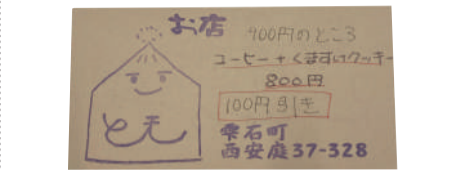 お店
900円のところ
コーヒー+くまざサクッキー
800円
100円引き
とも
雫石町
西安庭37-328